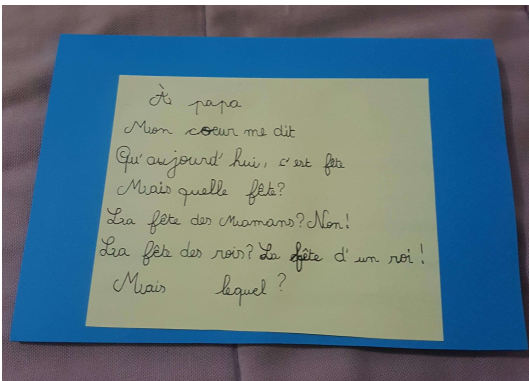 À papa
Mon coeur me dit
Qu'aujourd'hui, c'est fête
Mais quelle fête?
La fête des Mamans? Non!
La fête des rois? La fête d'un roi!
Mais lequel?